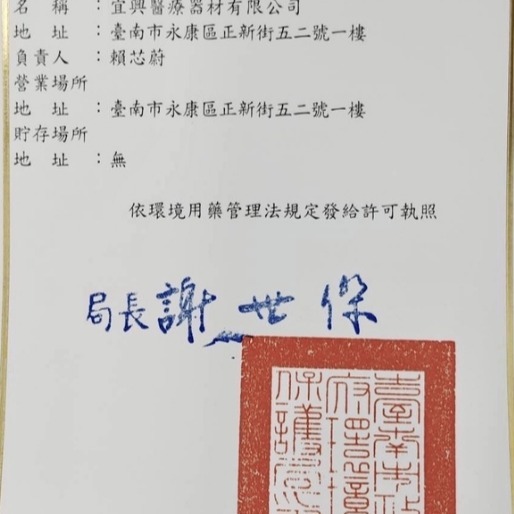 名稱：宜興醫療器材有限公司
地址：臺南市永康區正新街五二號一樓
負責人：賴芯蔚
營業場所
地址：臺南市永康區正新街五二號一樓
貯存場所
地址：無
依環境用藥管理法規定發給許可執照
局長謝世傑
臺南市政
府環境
保護局